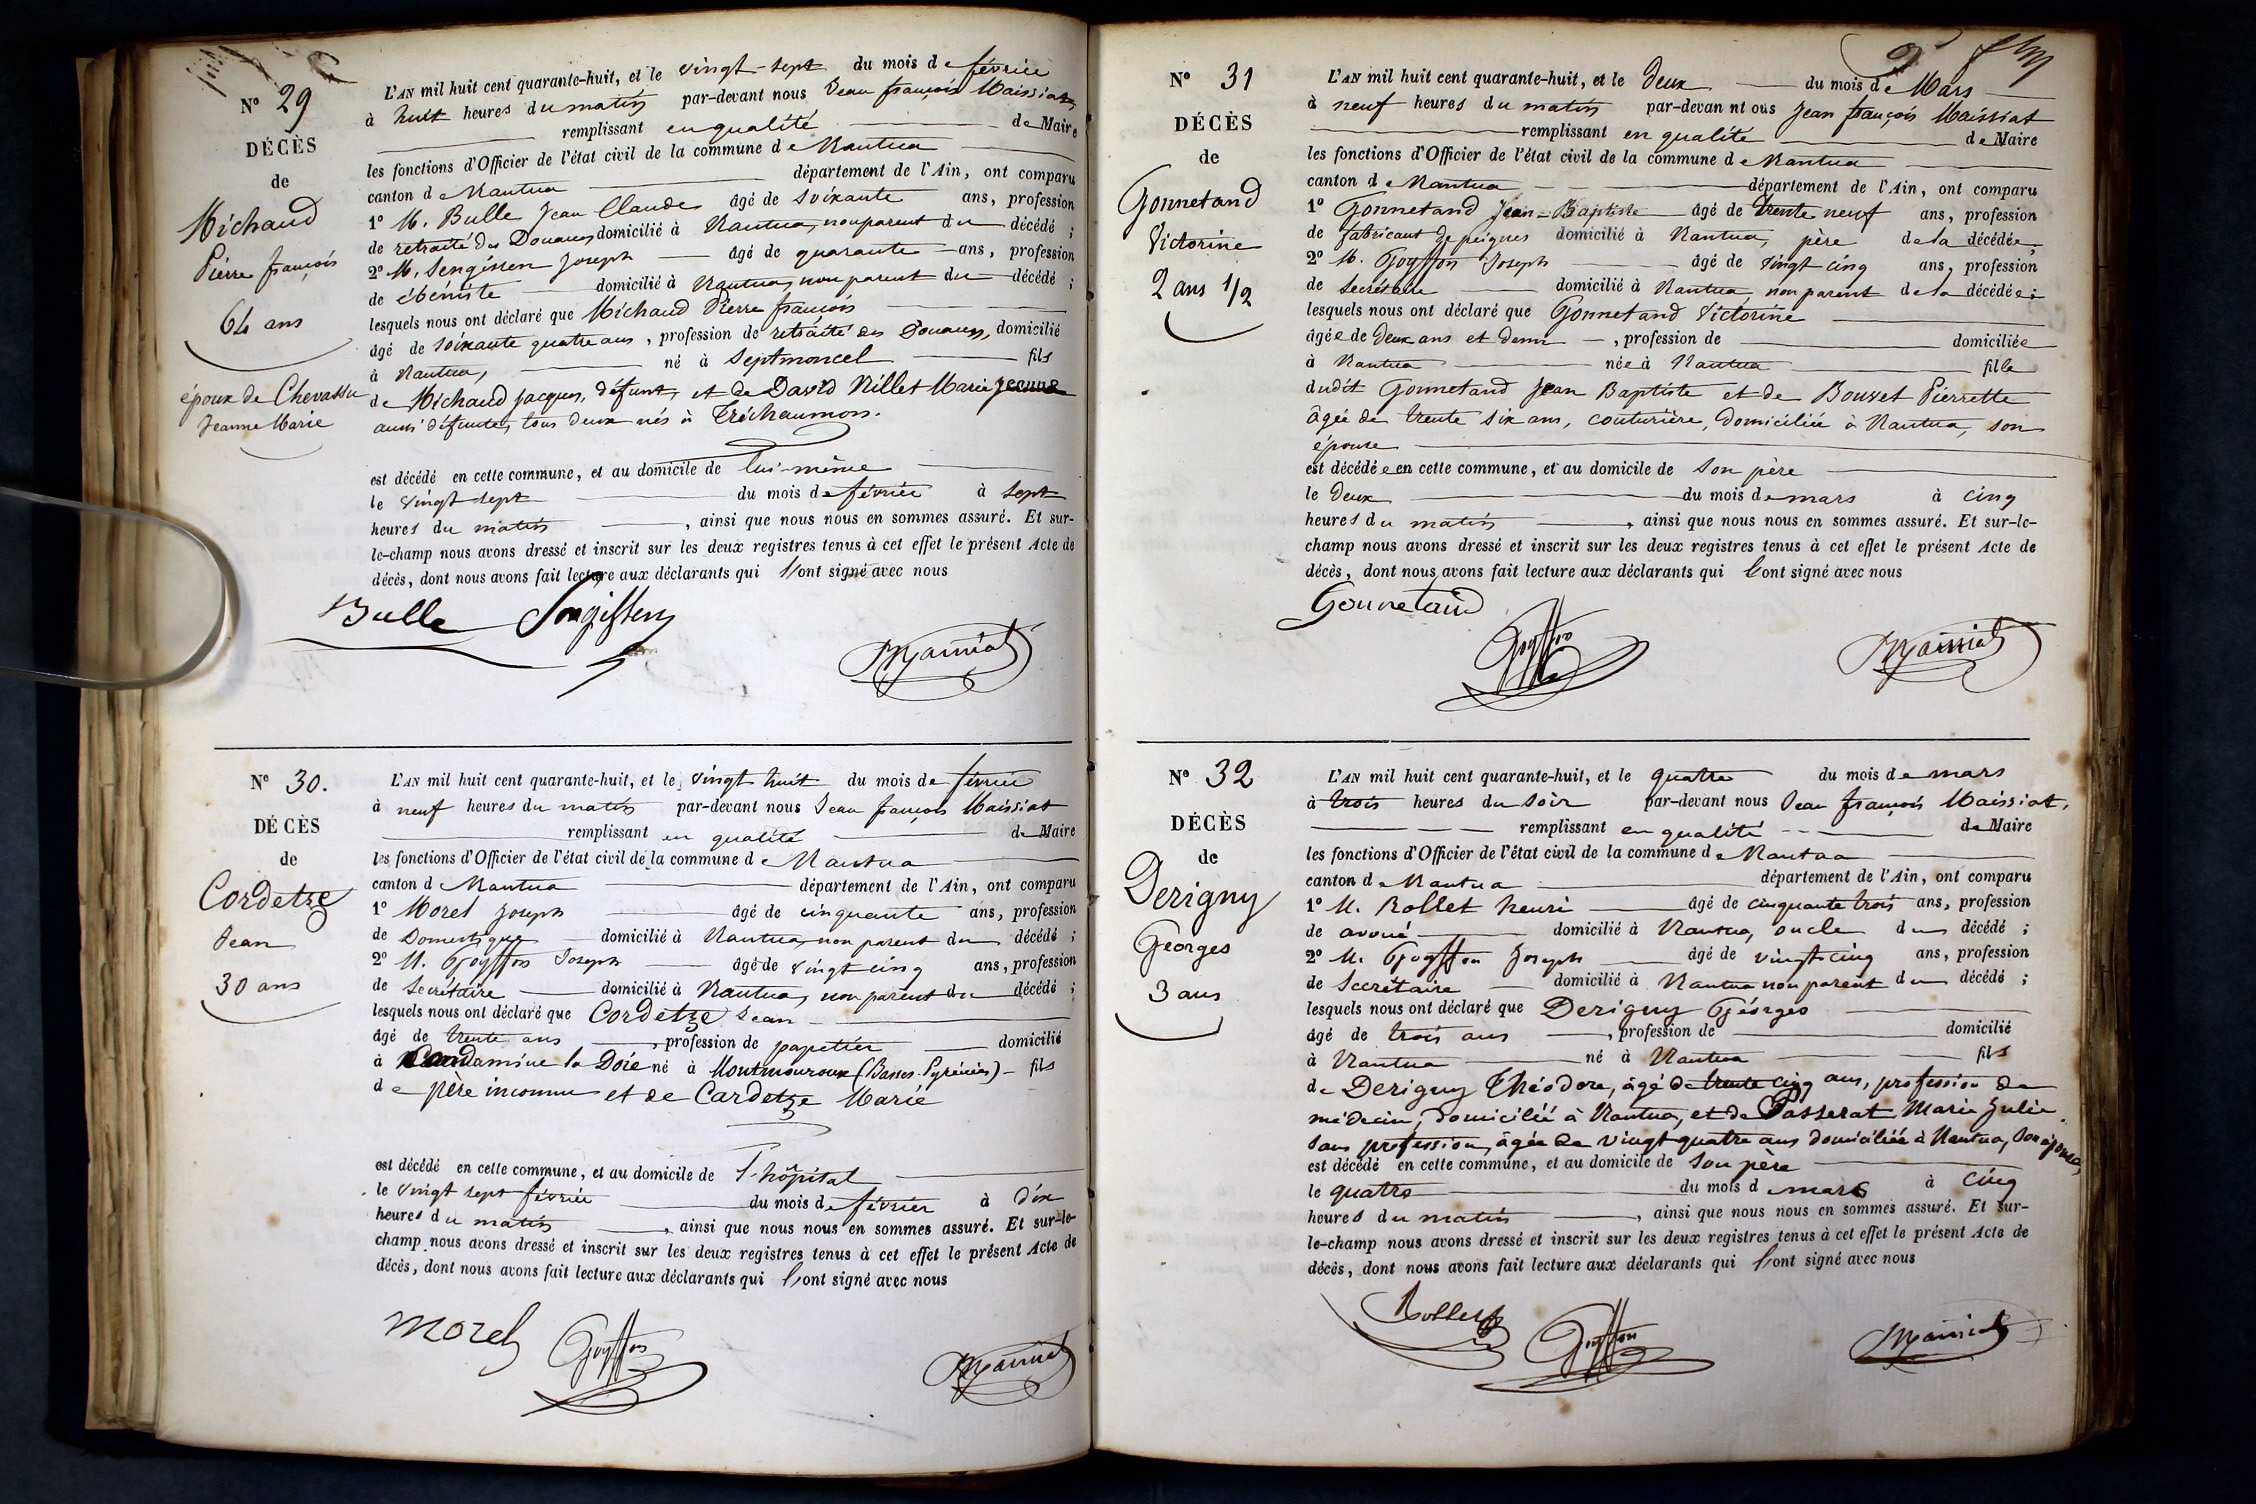 N° 29
DÉCÈS
de
Michaud
Pierre françois
64 ans
époux de Chevassu
Jeanne Marie
L'AN mil huit cent quarante-huit, et le vingt-sept du mois de février
à huit heures du matin par-devant nous Jean françois Maissiat,
remplissant en qualité de Maire
les fonctions d'Officier de l'état civil de la commune de Nantua
canton de Nantua département de l'Ain, ont comparu
1° M. Bulle Jean Claude âgé de soixante ans, profession
de retraité des Douanes domicilié à Nantua, non parent du décédé ;
2° M. Sengissen Joseph âgé de quarante ans, profession
de ébéniste domicilié à Nantua, non parent du décédé ;
lesquels nous ont déclaré que Michaud Pierre françois
âgé de soixante quatre ans, profession de retraité des Douanes, domicilié
à Nantua, né à Septmoncel fils
de Michaud Jacques, défunt, et de David Nillet Marie Jeanne
aussi défunte, tous deux nés à Tréchaumon.
est décédé en cette commune, et au domicile de lui-même
le vingt sept du mois de février à sept
heures du matin, ainsi que nous nous en sommes assuré. Et sur-
le-champ nous avons dressé et inscrit sur les deux registres tenus à cet effet le présent Acte de
décès, dont nous avons fait lecture aux déclarants qui l'ont signé avec nous
Bulle Sengissen
Maissiat
N° 30.
DÉCÈS
de
Cordetze
Jean
30 ans
L'AN mil huit cent quarante-huit, et le vingt huit du mois de février
à neuf heures du matin par-devant nous Jean françois Maissiat
remplissant en qualité de Maire
les fonctions d'Officier de l'état civil de la commune de Nantua
canton de Nantua département de l'Ain, ont comparu
1° Morel Joseph âgé de cinquante ans, profession
de Domestique domicilié à Nantua, non parent du décédé ;
2° M. Goyffon Joseph âgé de vingt cinq ans, profession
de Secrétaire domicilié à Nantua, non parent du décédé ;
lesquels nous ont déclaré que Cordetze Jean
âgé de trente ans, profession de papetier domicilié
à Condamine la Doie né à Montmouroux (Basses-Pyrénées) - fils
de père inconnu et de Cardetze Marie
est décédé en cette commune, et au domicile de l'hôpital
le vingt sept février du mois de février à dix
heures du matin, ainsi que nous nous en sommes assuré. Et sur-le-
champ nous avons dressé et inscrit sur les deux registres tenus à cet effet le présent Acte de
décès, dont nous avons fait lecture aux déclarants qui l'ont signé avec nous
Morel Goyffon
Maissiat
N° 31
DÉCÈS
de
Gonnetand
Victorine
2 ans 1/2
L'AN mil huit cent quarante-huit, et le deux du mois de Mars
à neuf heures du matin par-devan nt ous Jean françois Maissiat
remplissant en qualité de Maire
les fonctions d'Officier de l'état civil de la commune de Nantua
canton de Nantua département de l'Ain, ont comparu
1° Gonnetand Jean-Baptiste âgé de trente neuf ans, profession
de fabricant de peignes domicilié à Nantua, père de la décédée ;
2° M. Goyffon Joseph âgé de vingt cinq ans, profession
de Secrétaire domicilié à Nantua non parent de la décédée ;
lesquels nous ont déclaré que Gonnetand Victorine
âgée de deux ans et demi, profession de domiciliée
à Nantua née à Nantua fille
dudit Gonnetand Jean Baptiste et de Bouvet Pierrette
âgée de trente six ans, couturière, domiciliée à Nantua, son
épouse
est décédée en cette commune, et au domicile de son père
le deux du mois de mars à cinq
heures du matin, ainsi que nous nous en sommes assuré. Et sur-le-
champ nous avons dressé et inscrit sur les deux registres tenus à cet effet le présent Acte de
décès, dont nous avons fait lecture aux déclarants qui l'ont signé avec nous
Gonnetand
Goyffon
Maissiat
N° 32
DÉCÈS
de
Derigny
Georges
3 ans
L'AN mil huit cent quarante-huit, et le quatre du mois de mars
à trois heures du soir par-devant nous Jean françois Maissiat,
remplissant en qualité de Maire
les fonctions d'Officier de l'état civil de la commune de Nantua
canton de Nantua département de l'Ain, ont comparu
1° M. Rollet henri âgé de cinquante trois ans, profession
de avoué domicilié à Nantua, oncle du décédé ;
2° M. Goyffon Joseph âgé de vingt cinq ans, profession
de Secrétaire domicilié à Nantua non parent du décédé ;
lesquels nous ont déclaré que Derigny Géorges
âgé de trois ans, profession de domicilié
à Nantua né à Nantua fils
de Derigny Théodore, âgé de trente cinq ans, profession de
médecin, domicilié à Nantua, et de Passerat Marie Julie
sans profession, âgée de vingt quatre ans domiciliée à Nantua, son épouse,
est décédé en cette commune, et au domicile de son père
le quatre du mois de mars à cinq
heures du matin, ainsi que nous nous en sommes assuré. Et sur-
le-champ nous avons dressé et inscrit sur les deux registres tenus à cet effet le présent Acte de
décès, dont nous avons fait lecture aux déclarants qui l'ont signé avec nous
Rollet
Goyffon
Maissiat